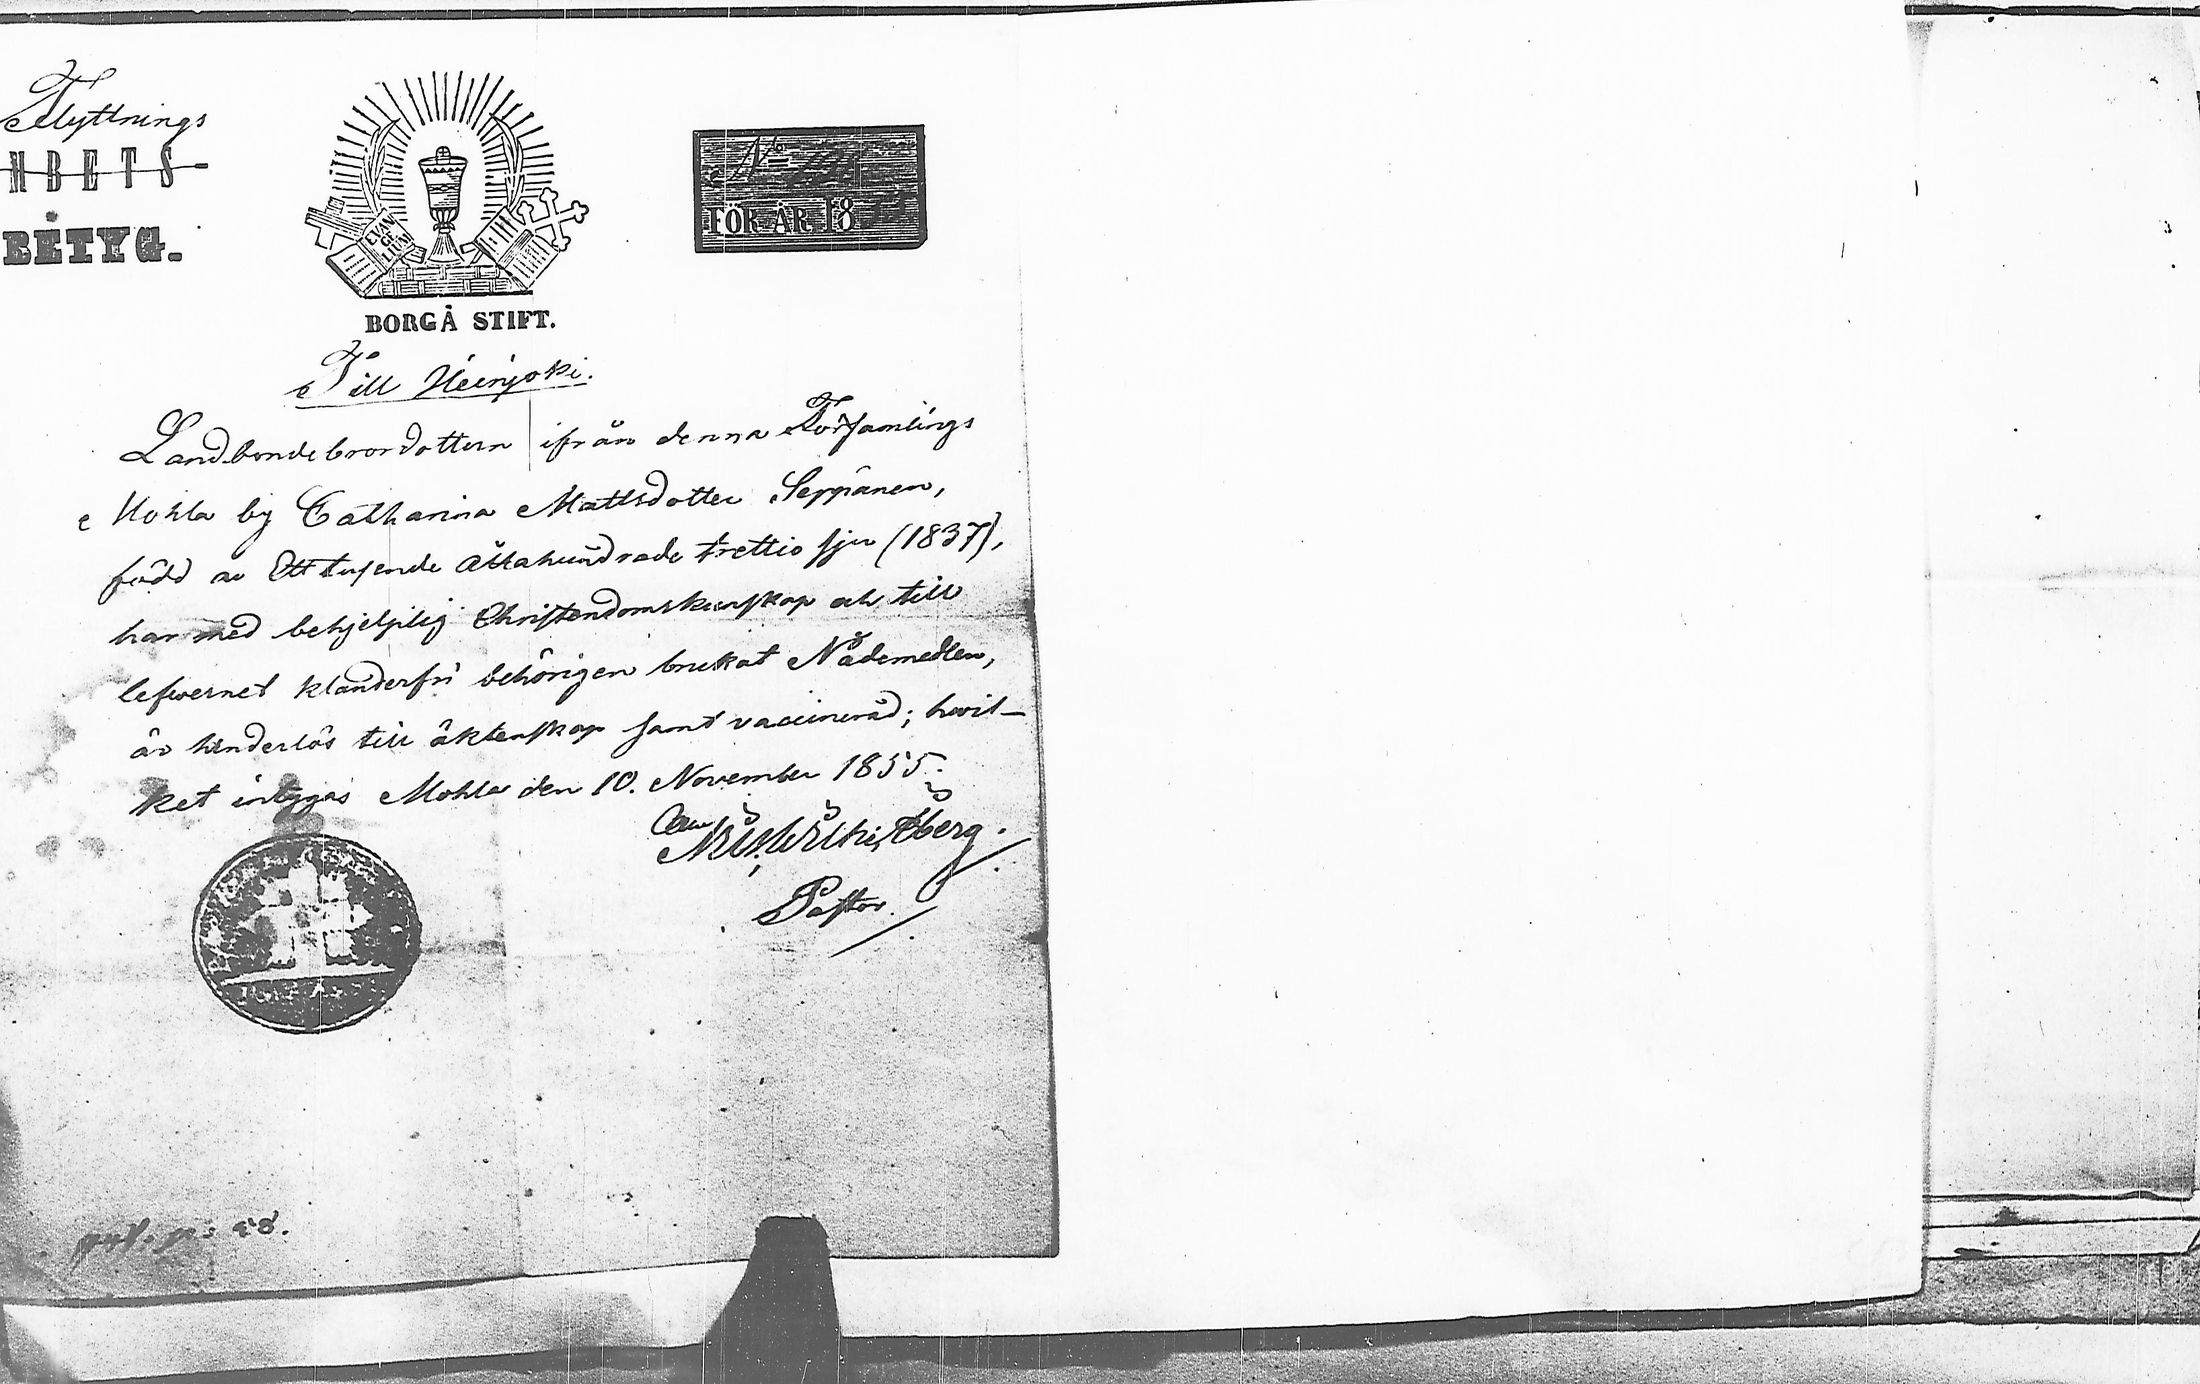 Flyttnings
HBETS-
BETYG.
EVAN
GE
LIUM
No
FÖR ÅR 18
BORGÅ STIFT.
Till Heinjoki.
Landbondebrordottern ifrån denna Församlings
Mohla by Catharina Mattsdotter Seppänen,
född år Ett tusende åttahundrade trettio sju (1837),
har med behjelplig Christendomskunskap och till
lefvernet klanderfri behörigen brukat Nådemedlen,
är hinderlös till äktenskap samt vaccinerad; hvil-
ket intygas Mohla den 10. November 1855.
Pastor.
48.